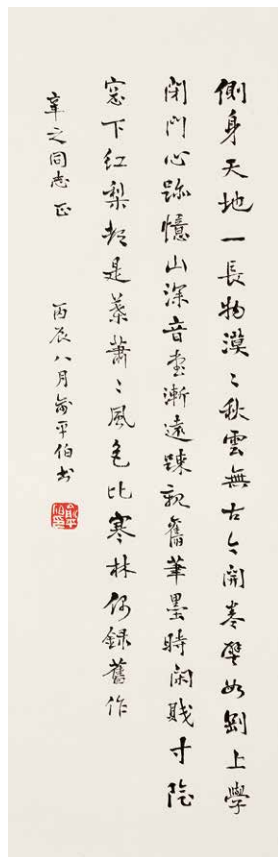 側身天地一長物漠〻秋雲無古今開卷譬如剛上學
閉門心跡憶山深音書漸遠踈親舊筆墨時閑賤寸陰
窓下紅梨都是葉蕭〻風色比寒林偶録舊作
辛之同志正 丙辰八月俞平伯书
俞平伯印